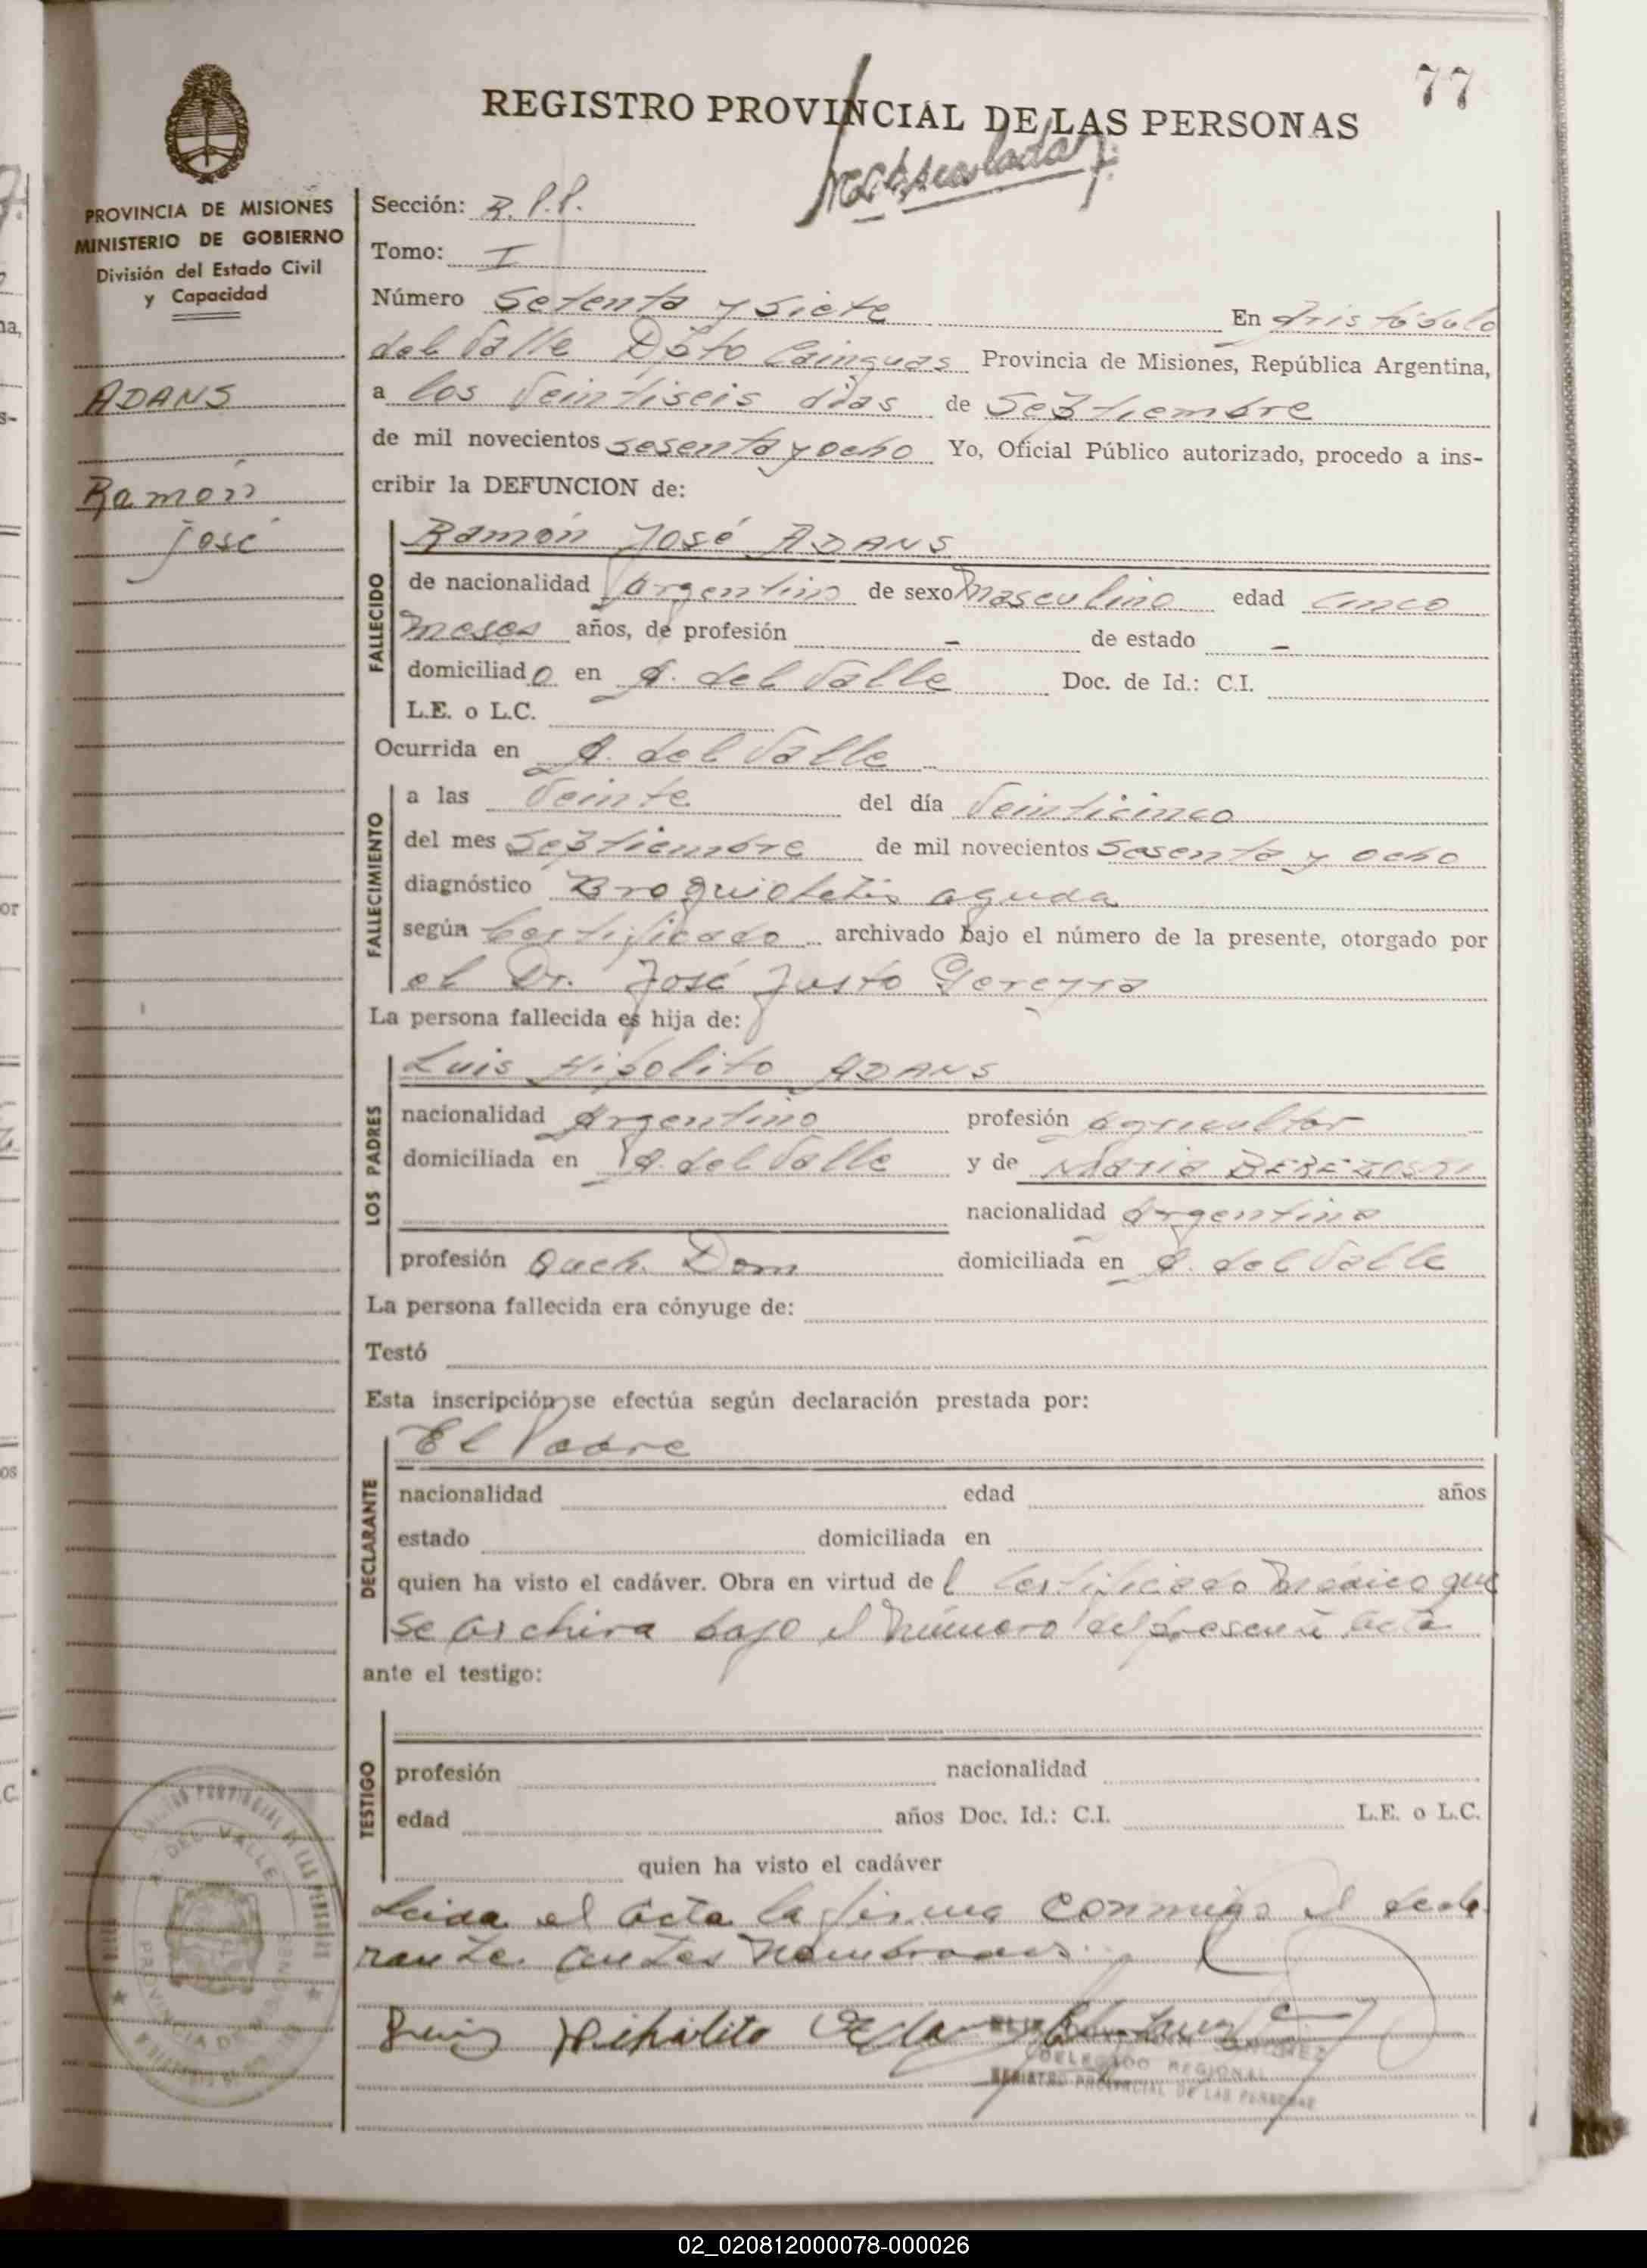 77
REGISTRO PROVINCIAL DE LAS PERSONAS
PROVINCIA DE MISIONES
MINISTERIO DE GOBIERNO
División del Estado Civil
y Capacidad
ADANS
Ramón
José
Sección: R.P.P.
Tomo: I
Número Setenta y Siete En Aristóbulo
del Valle Dpto Cainguas Provincia de Misiones, República Argentina,
a los Veintiseis dias de Septiembre
de mil novecientos sesenta y ocho Yo, Oficial Público autorizado, procedo a ins-
cribir la DEFUNCION de:
FALLECIDO
Ramón José ADANS
de nacionalidad Argentino de sexo Masculino edad cinco
meses años, de profesión - de estado -
domiciliado en A. del Valle Doc. de Id.: C.I.
L.E. o L.C.
Ocurrida en A. del Valle
FALLECIMIENTO
a las Veinte del día Veinticinco
del mes Septiembre de mil novecientos Sesenta y ocho
diagnóstico aguda
según Certificado archivado bajo el número de la presente, otorgado por
el Dr. José Justo
La persona fallecida es hija de:
LOS PADRES
Luis Hipolito ADANS
nacionalidad Argentino profesión agricultor
domiciliada en A. del Valle y de Maria
nacionalidad Argentina
profesión Queh. Dom domiciliada en A. del Valle
La persona fallecida era cónyuge de:
Testó
Esta inscripción se efectúa según declaración prestada por:
DECLARANTE
El Padre
nacionalidad edad años
estado domiciliada en
quien ha visto el cadáver. Obra en virtud del Certificado Médico que
se archiva bajo el número del presente acta
ante el testigo:
TESTIGO
profesión nacionalidad
edad años Doc. Id.: C.I. L.E. o L.C.
quien ha visto el cadáver
Leida el acta la firma conmigo el decla
rante antes nombrado.
Hipolito
DELEGADO REGIONAL
REGISTRO PROVINCIAL DE LAS PERSONAS
A. DEL VALLE
PROVINCIA DE MISIONES
02_020812000078-000026